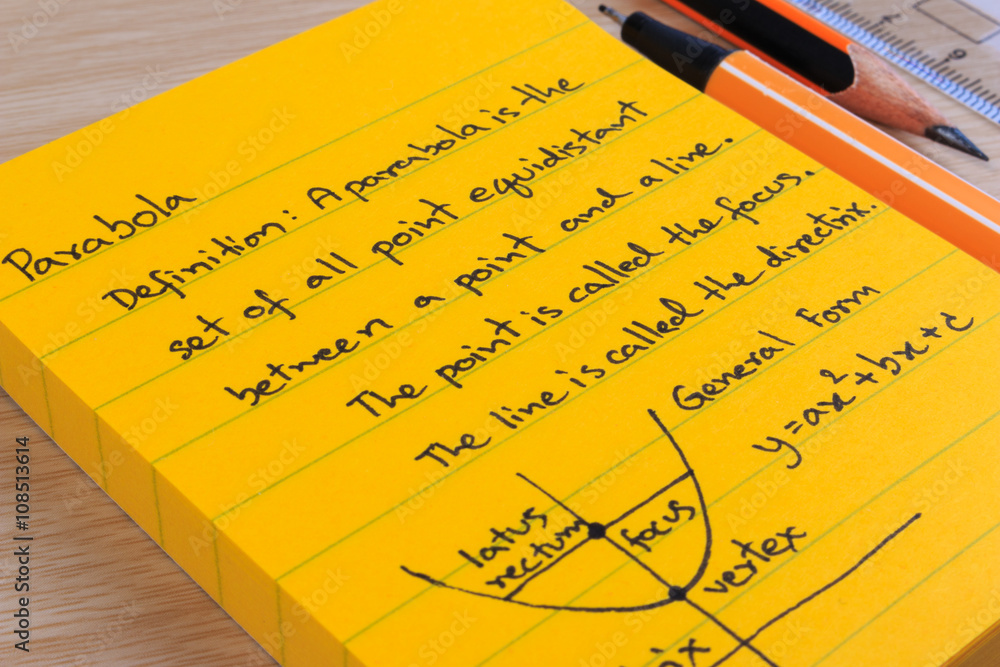 Parabola
Definition: A parabola is the
set of all point equidistant
between a point and a line.
The point is called the focus.
The line is called the directrix.
General form
y=ax²+bx+c
latus
rectum
focus
vertex
Adobe Stock | #108513614